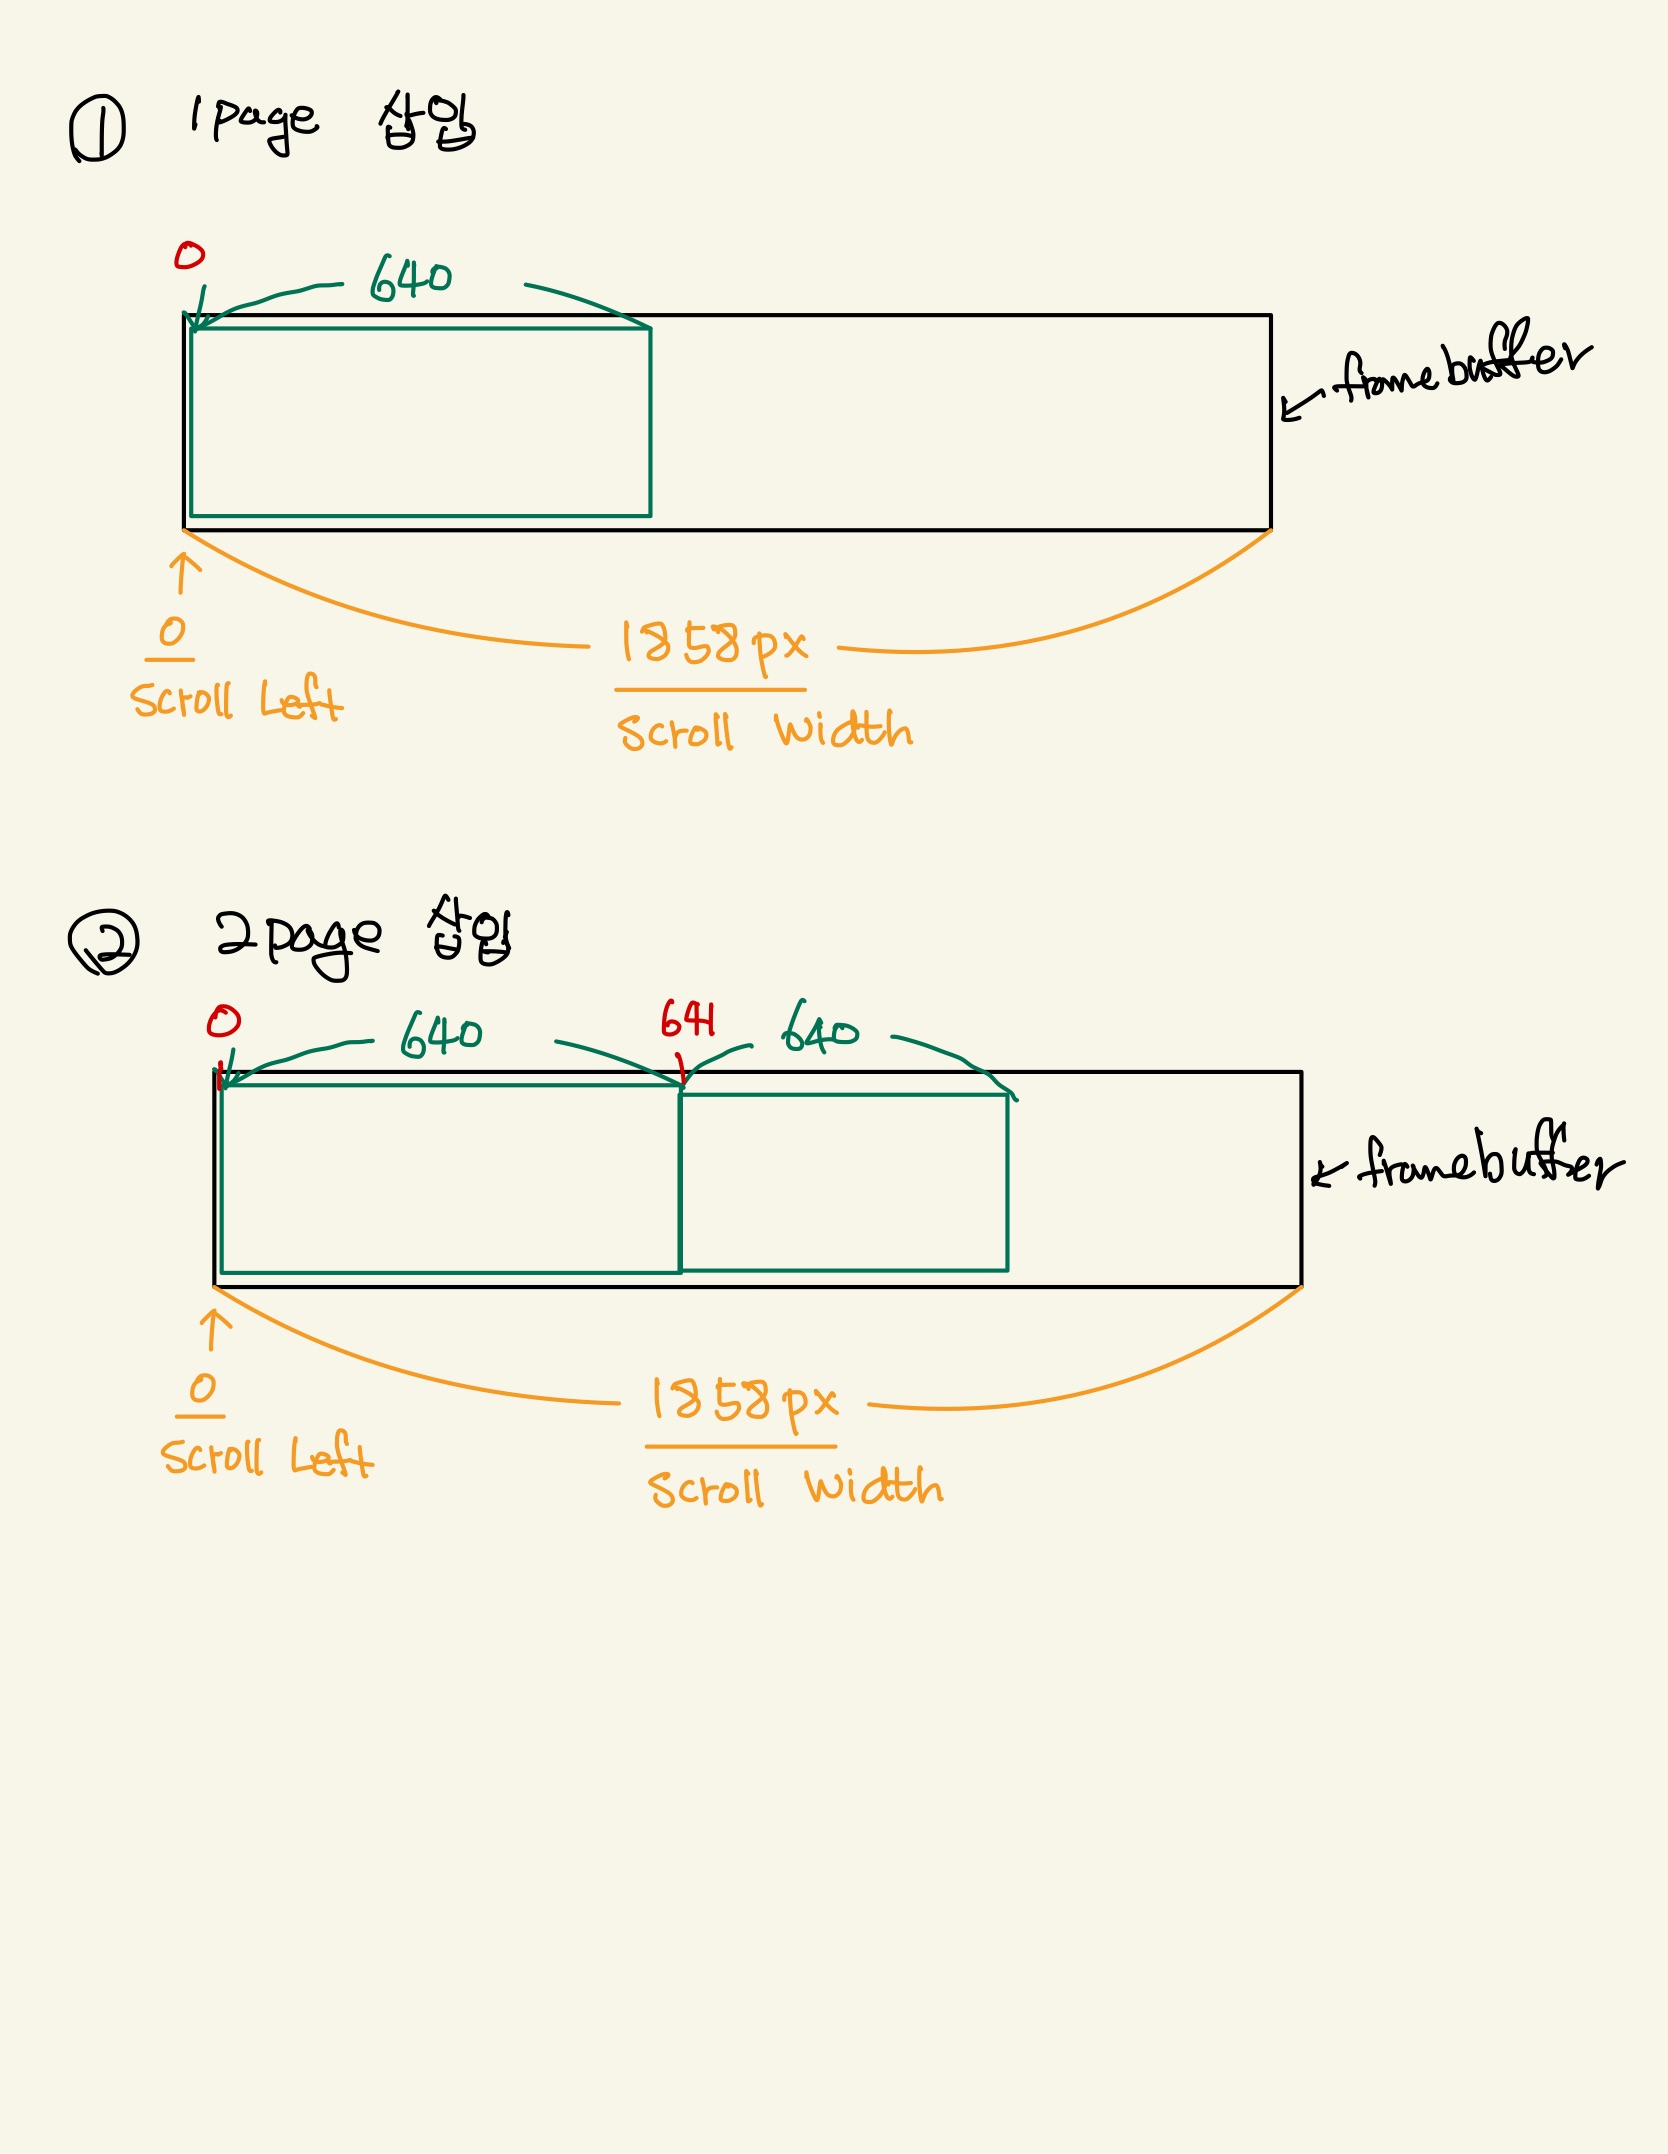 ① 1page 삽입
0
640
framebuffer
0
Scroll Left
1858px
Scroll Width
② 2page 삽입
0
640
641
640
framebuffer
0
Scroll Left
1858px
Scroll Width